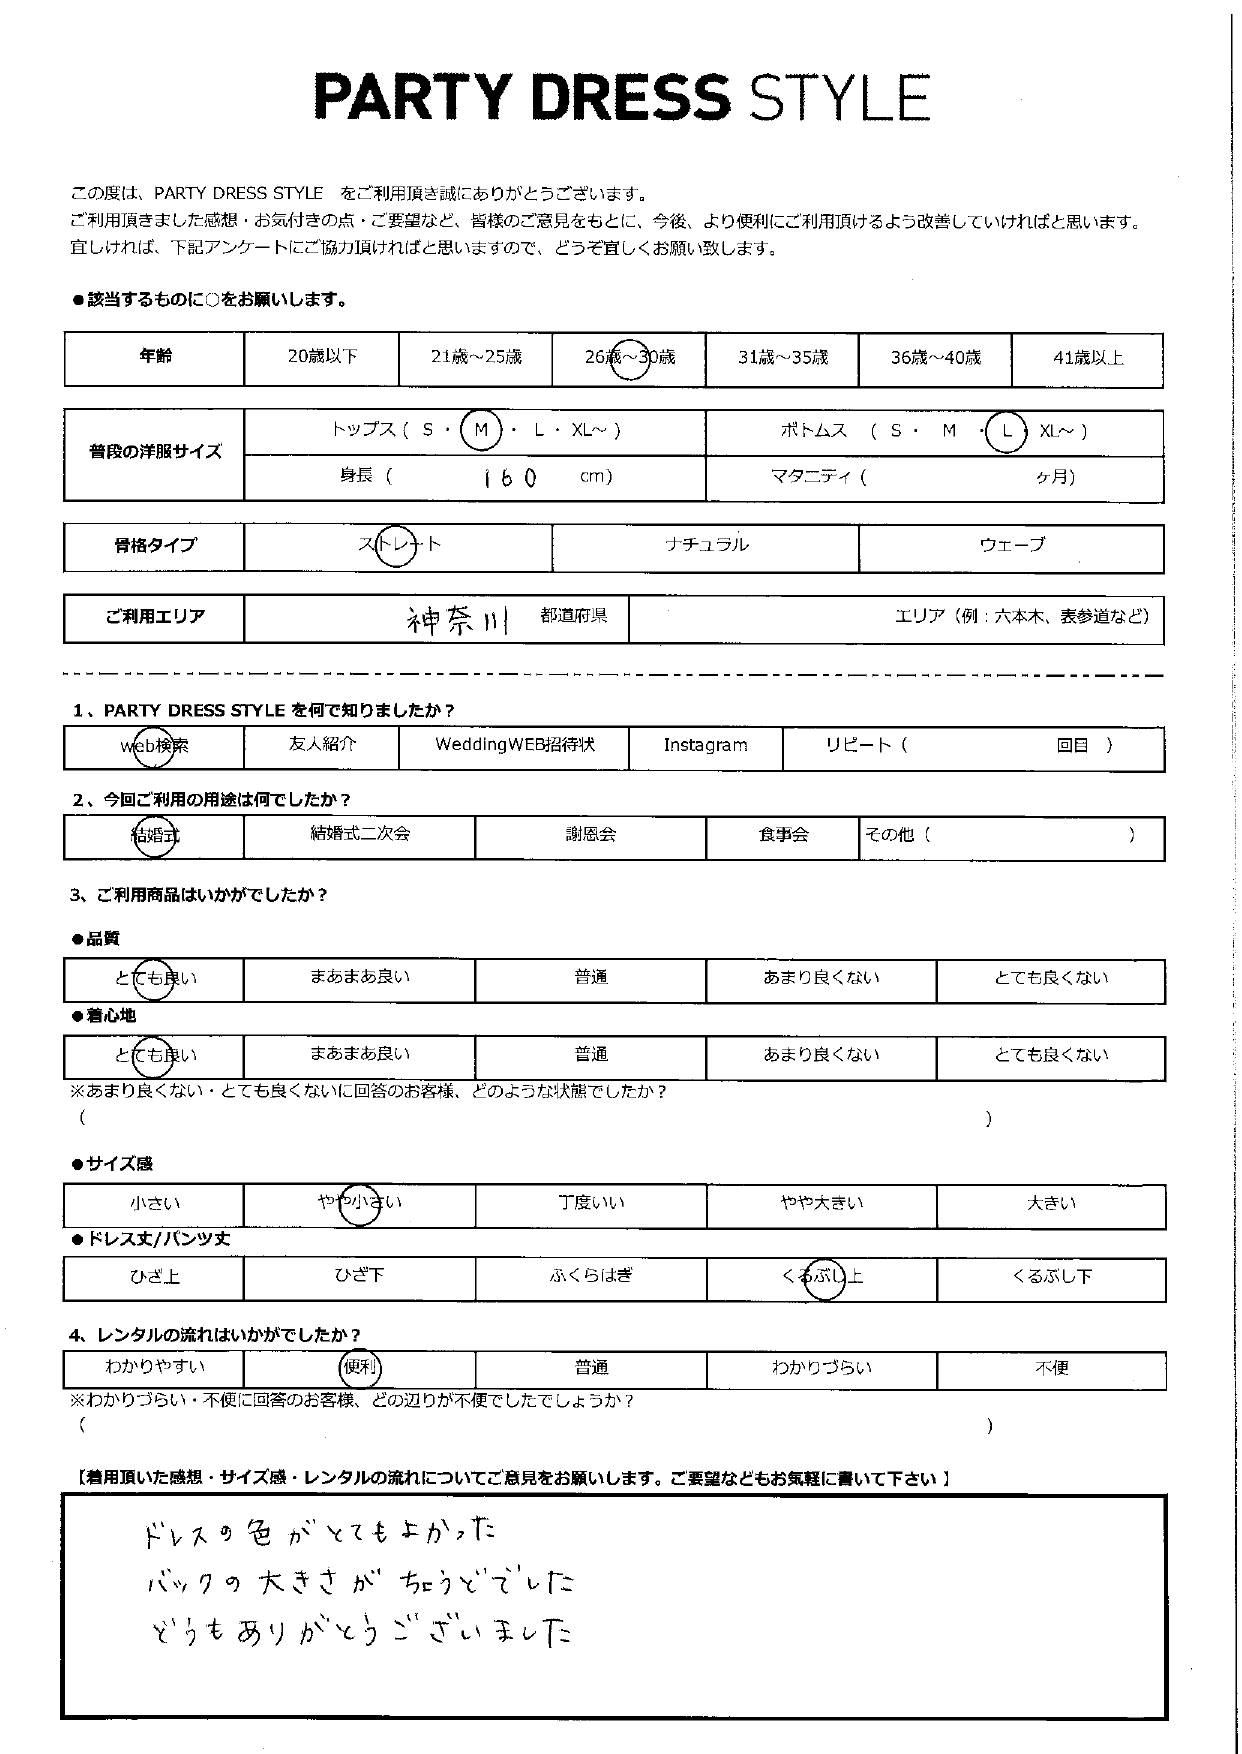 PARTY DRESS STYLE
この度は、PARTY DRESS STYLE をご利用頂き誠にありがとうございます。
ご利用頂きました感想・お気付きの点・ご要望など、皆様のご意見をもとに、今後、より便利にご利用頂けるよう改善していければと思います。
宜しければ、下記アンケートにご協力頂ければと思いますので、どうぞ宜しくお願い致します。
●該当するものに○をお願いします。
年齢 20歳以下 21歳～25歳 26歳～30歳 31歳～35歳 36歳～40歳 41歳以上
普段の洋服サイズ トップス ( S ・ M ・ L ・ XL～ ) ボトムス ( S ・ M ・ L XL～ )
身長 ( 160 cm) マタニティ ( ヶ月)
骨格タイプ ストレート ナチュラル ウェーブ
ご利用エリア 神奈川 都道府県 エリア（例：六本木、表参道など）
1、PARTY DRESS STYLE を何で知りましたか？
web検索 友人紹介 WeddingWEB招待状 Instagram リピート ( 回目 )
2、今回ご利用の用途は何でしたか？
結婚式 結婚式二次会 謝恩会 食事会 その他 ( )
3、ご利用商品はいかがでしたか？
●品質
とても良い まあまあ良い 普通 あまり良くない とても良くない
●着心地
とても良い まあまあ良い 普通 あまり良くない とても良くない
※あまり良くない・とても良くないに回答のお客様、どのような状態でしたか？
( )
●サイズ感
小さい やや小さい 丁度いい やや大きい 大きい
●ドレス丈/パンツ丈
ひざ上 ひざ下 ふくらはぎ くるぶし上 くるぶし下
4、レンタルの流れはいかがでしたか？
わかりやすい 便利 普通 わかりづらい 不便
※わかりづらい・不便に回答のお客様、どの辺りが不便でしたでしょうか？
( )
【着用頂いた感想・サイズ感・レンタルの流れについてご意見をお願いします。ご要望などもお気軽に書いて下さい】
ドレスの色がとてもよかった
バックの大きさがちょうどでした
どうもありがとうございました